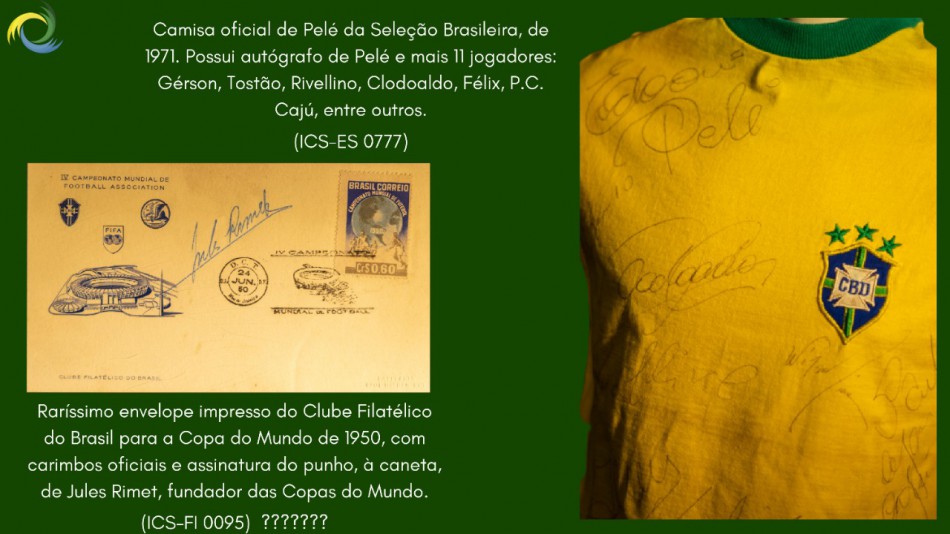 Camisa oficial de Pelé da Seleção Brasileira, de
1971. Possui autógrafo de Pelé e mais 11 jogadores:
Gérson, Tostão, Rivellino, Clodoaldo, Félix, P.C.
Cajú, entre outros.
(ICS-ES 0777)
IV CAMPEONATO MUNDIAL DE
FOOTBALL ASSOCIATION
FIFA
BRASIL CORREIO
CAMPEONATO MUNDIAL DE FUTEBOL
Cr$ 0,60
D.C.T.
24
JUN.
50
IV CAMPEONATO
MUNDIAL DE FOOTBALL
CLUBE FILATÉLICO DO BRASIL
Raríssimo envelope impresso do Clube Filatélico
do Brasil para a Copa do Mundo de 1950, com
carimbos oficiais e assinatura do punho, à caneta,
de Jules Rimet, fundador das Copas do Mundo.
(ICS-FI 0095) ???????
Pelé
CBD